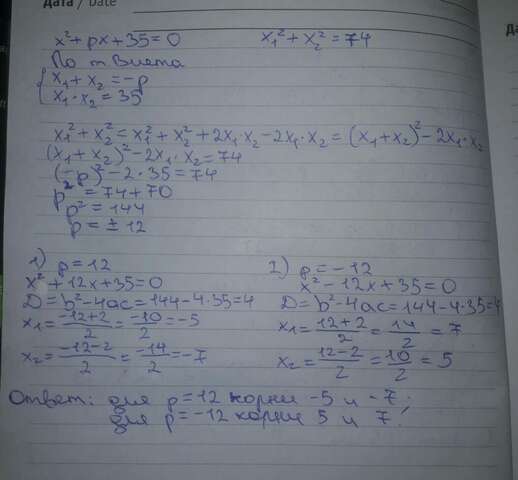 Дата / Date
x² + px + 35 = 0    x₁² + x₂² = 74
По т Виета
{ x₁ + x₂ = -p
x₁ · x₂ = 35
x₁² + x₂² = x₁² + x₂² + 2x₁·x₂ - 2x₁·x₂ = (x₁ + x₂)² - 2x₁·x₂
(x₁ + x₂)² - 2x₁·x₂ = 74
(-p)² - 2·35 = 74
p² = 74 + 70
p² = 144
p = ± 12
1) p = 12
x² + 12x + 35 = 0
D = b² - 4ac = 144 - 4·35 = 4
x₁ = (-12+2)/2 = -10/2 = -5
x₂ = (-12-2)/2 = -14/2 = -7
2) p = -12
x² - 12x + 35 = 0
D = b² - 4ac = 144 - 4·35 = 4
x₁ = (12+2)/2 = 14/2 = 7
x₂ = (12-2)/2 = 10/2 = 5
Ответ: для p = 12 корни -5 и -7;
для p = -12 корни 5 и 7;